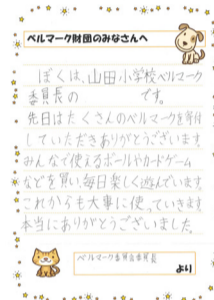 ベルマーク財団のみなさんへ
ぼくは、山田小学校ベルマーク
委員長の　　　　　です。
先日はたくさんのベルマークを寄付
していただきありがとうございます。
みんなで使えるボールやカードゲーム
などを買い、毎日楽しく遊んでいます。
これからも大事に使っていきます。
本当にありがとうございました。
ベルマーク委員会委員長
より